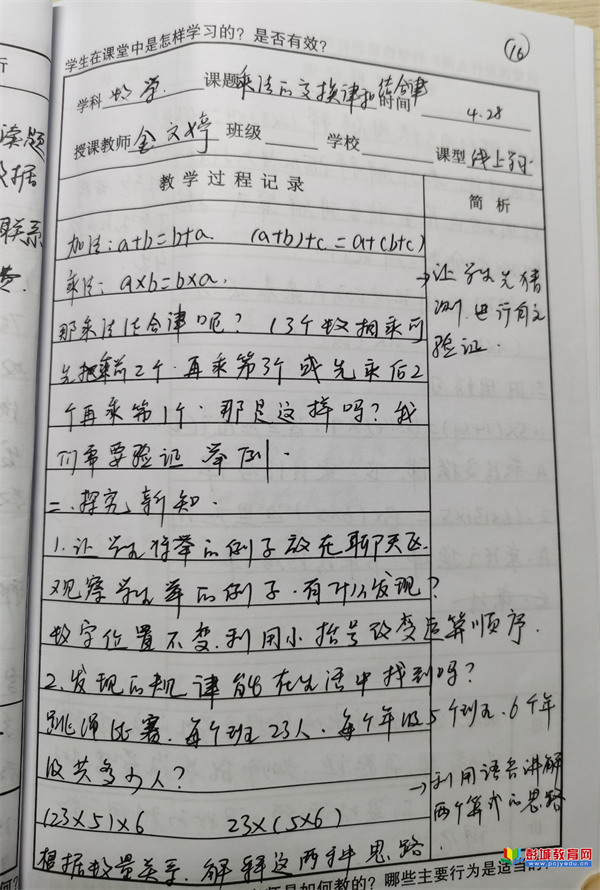 学生在课堂中是怎样学习的？是否有效？
16
学科 数学 课题 乘法的交换律和结合律 时间 4.28
授课教师 金 婷 班级 学校 课型 线上学习
教学过程记录
简析
加法：a+b=b+a. (a+b)+c=a+(b+c)
乘法：a×b=b×a.
→让学生先猜
测，进行自主
验证.
那乘法结合律呢？(3个数相乘可
先把乘前2个.再乘第3个或先乘后2
个再乘第1个.那是这样吗？我
们需要验证 举例.
二.探究新知.
1.让学生将举的例子放在聊天区.
观察学生举的例子.有什么发现？
数字位置不变.利用小括号改变运算顺序.
2.发现的规律能在生活中找到吗？
跳绳比赛.每个班23人.每个年级5个班.6个年
级共多少人？
→利用语言讲解
两个算式的思路
(23×5)×6 23×(5×6)
根据数量关系.解释这两种思路.
是如何教的？哪些主要行为是适当的
读题
数据
联系
彭城教育网
www.pcjyedu.cn